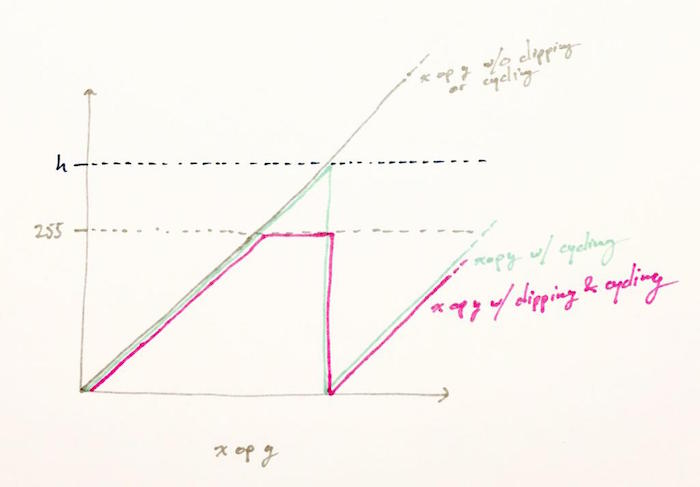 x op y w/o clipping
or cycling
h
255
x op y w/ cycling
x op y w/ clipping & cycling
x op y